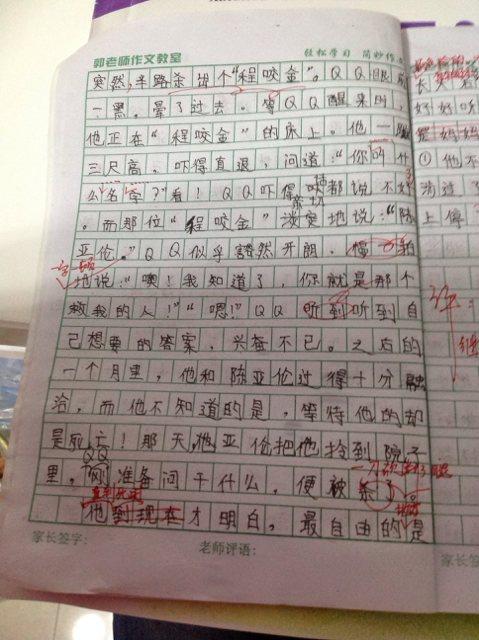 郭老师作文教室 轻松学习 简妙作
突然,半路杀出个“程咬金”。QQ眼前
一黑。晕了过去。等QQ醒来时,
他正在“程咬金”的床上。他一蹦
三尺高。吓得直退,问道:“你叫什
么名字?”看!QQ吓得话都说不好
。而那位“程咬金”淡定地说:“陈
亚伦。”QQ似乎豁然开朗。
地说:“噢!我知道了,你就是那个
救我的人!”“嗯!”QQ听到听到自
己想要的答案,兴奋不已。之后的
一个月里,他和陈亚伦过得十分融
洽,而他不知道的是,等待他的却
是死亡!那天,他亚伦把他拎到院子
里,QQ刚准备问干什么,便被杀了。
直到死时
他到现在才明白,最自由的是
家长签字:
老师评语:
长大
好好听
是妈妈
①他不
动过
上停
继
家长